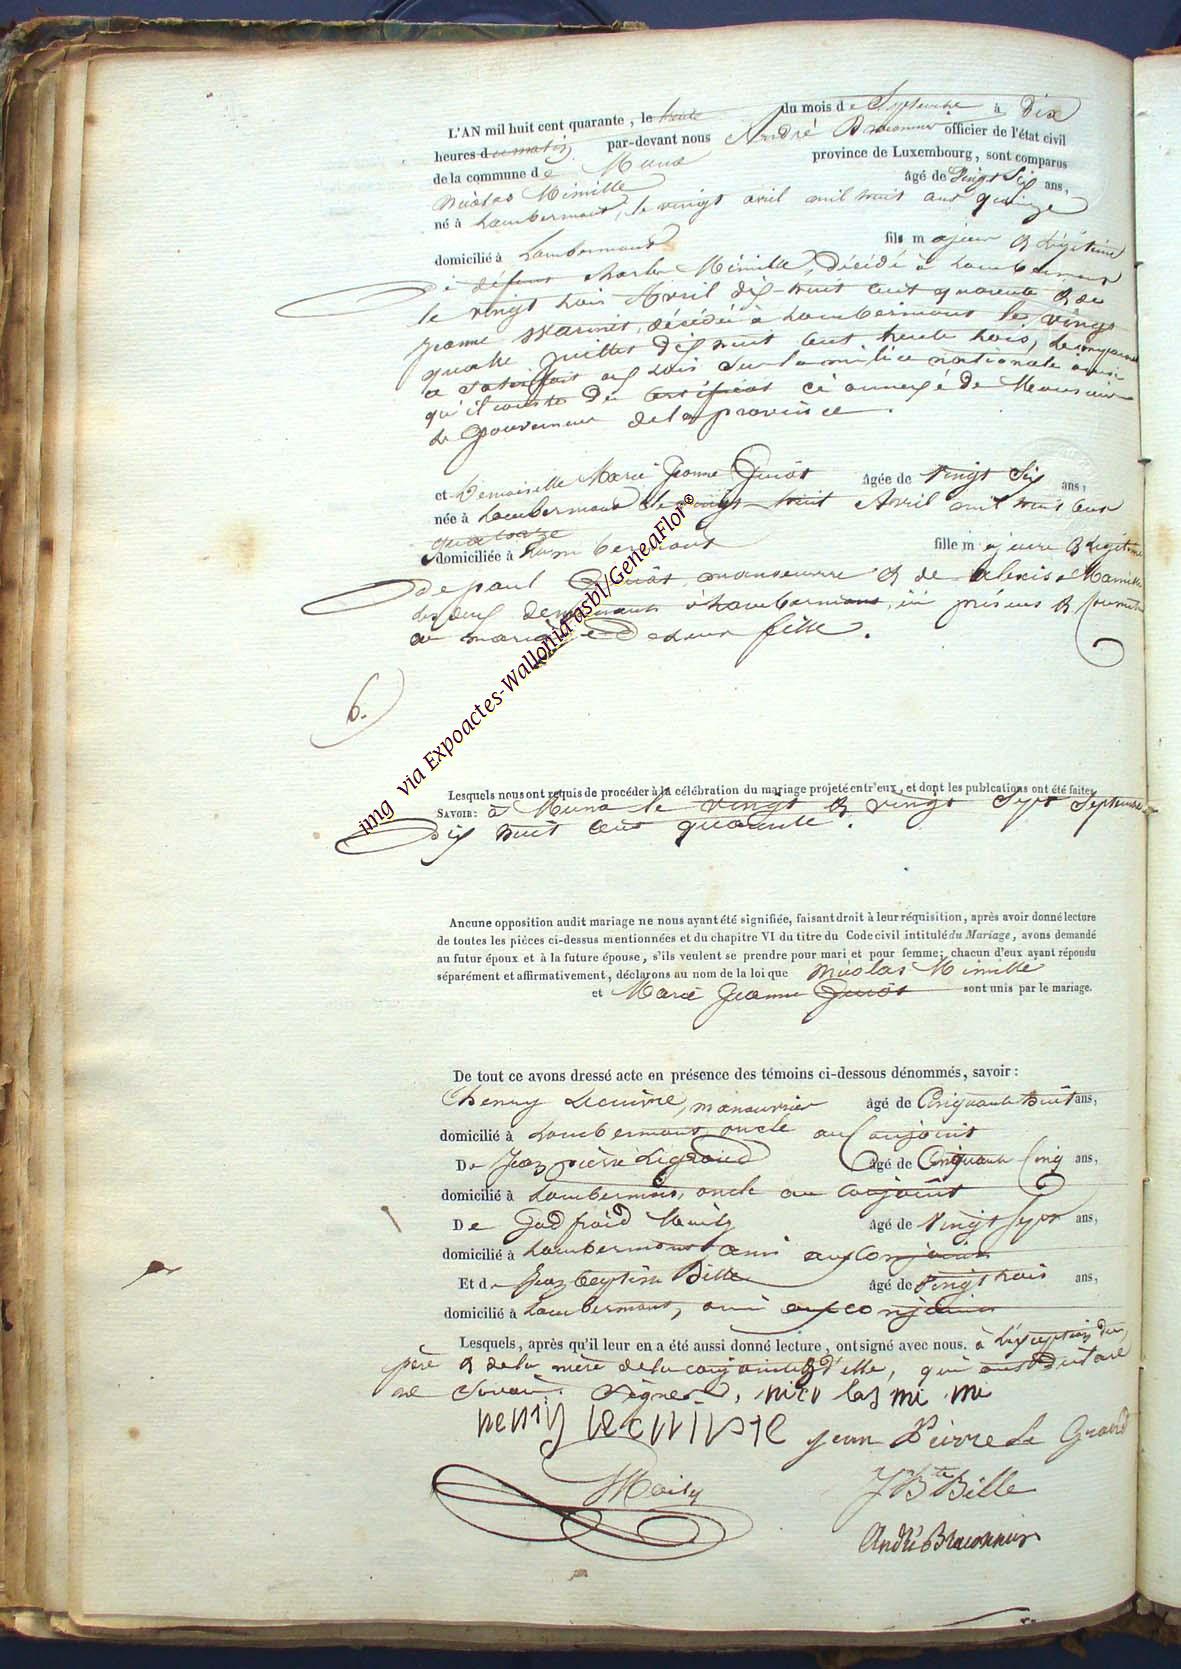 L'AN mil huit cent quarante, le trente du mois de Septembre à Dix
heures du matin par-devant nous André Braconnier officier de l'état civil
de la commune de Muno province de Luxembourg, sont comparus
Nicolas Mimille âgé de vingt Six ans,
né à Lambermont, le vingt avril mil huit cent quinze
domicilié à Lambermont fils majeur & légitime
de défunt Charles Mimille, décédé à Lambermont
le vingt trois Avril dix-huit cent quarante & de
Jeanne Warinet, décédée à Lambermont le vingt
quatre juillet dix huit cent trente trois, le comparant
a satisfait aux lois sur la milice nationale ainsi
qu'il conste du certificat ci annexé de Monsieur
le Gouverneur de la province.
et Demoiselle Marie Jeanne Guiot âgée de vingt Six ans,
née à Lambermont le vingt-huit Avril mil huit cent
quatorze
domiciliée à Lambermont fille majeure & légitime
de paul Guiot, manoeuvre & de Alexis Mamille
les deux demeurants à Lambermont, ici présens &
au mariage de leur fille.
6.
Lesquels nous ont requis de procéder à la célébration du mariage projeté entr'eux, et dont les publcations ont été faites
SAVOIR: à Muno le vingt & vingt Sept Septembre
dix huit cent quarante.
Aucune opposition audit mariage ne nous ayant été signifiée, faisant droit à leur réquisition, après avoir donné lecture
de toutes les pièces ci-dessus mentionnées et du chapitre VI du titre du Code civil intitulé du Mariage, avons demandé
au futur époux et à la future épouse, s'ils veulent se prendre pour mari et pour femme; chacun d'eux ayant répondu
séparément et affirmativement, déclarons au nom de la loi que Nicolas Mimille
et Marie Jeanne Guiot sont unis par le mariage.
De tout ce avons dressé acte en présence des témoins ci-dessous dénommés, savoir:
henry Lecuivre, manouvrier âgé de Cinquante huit ans,
domicilié à Lambermont, oncle au Conjoint
De Jean pierre Legrand âgé de Cinquante Cinq ans,
domicilié à Lambermont, oncle au Conjoint
De Godfroid Maily âgé de vingt Sept ans,
domicilié à Lambermont ami aux Conjoints
Et de Jean baptiste Bille âgé de vingt trois ans,
domicilié à Lambermont, ami aux conjoints
Lesquels, après qu'il leur en a été aussi donné lecture, ont signé avec nous. à l'exception du
père & de la mère de la conjointe & d'elle, qui ont déclaré
ne Savoir Signer, nico las mi mi
henry lecuivre jean Pierre Le Grand
Maily JBte Bille
André Braconnier
img via Expoactes-Wallonia asbl/GeneaFlor©